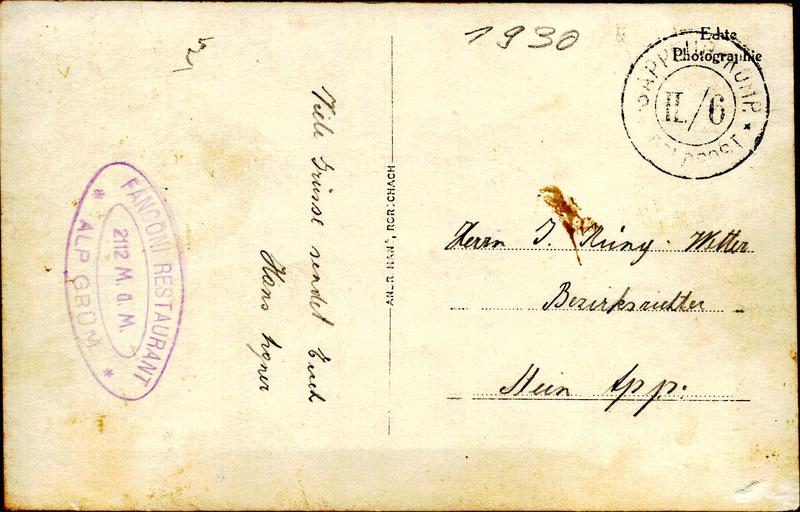 1930
Echte
Photographie
SAPPEUR-KOMP.
II./6
* FELDPOST *
Viele Grüsse sendet Euch
Hans
FANCONI RESTAURANT
2112 M. ü. M.
* ALP GRÜM *
RORSCHACH
Herrn J. Küng. Wetter
Bezirksrichter
Stein App.